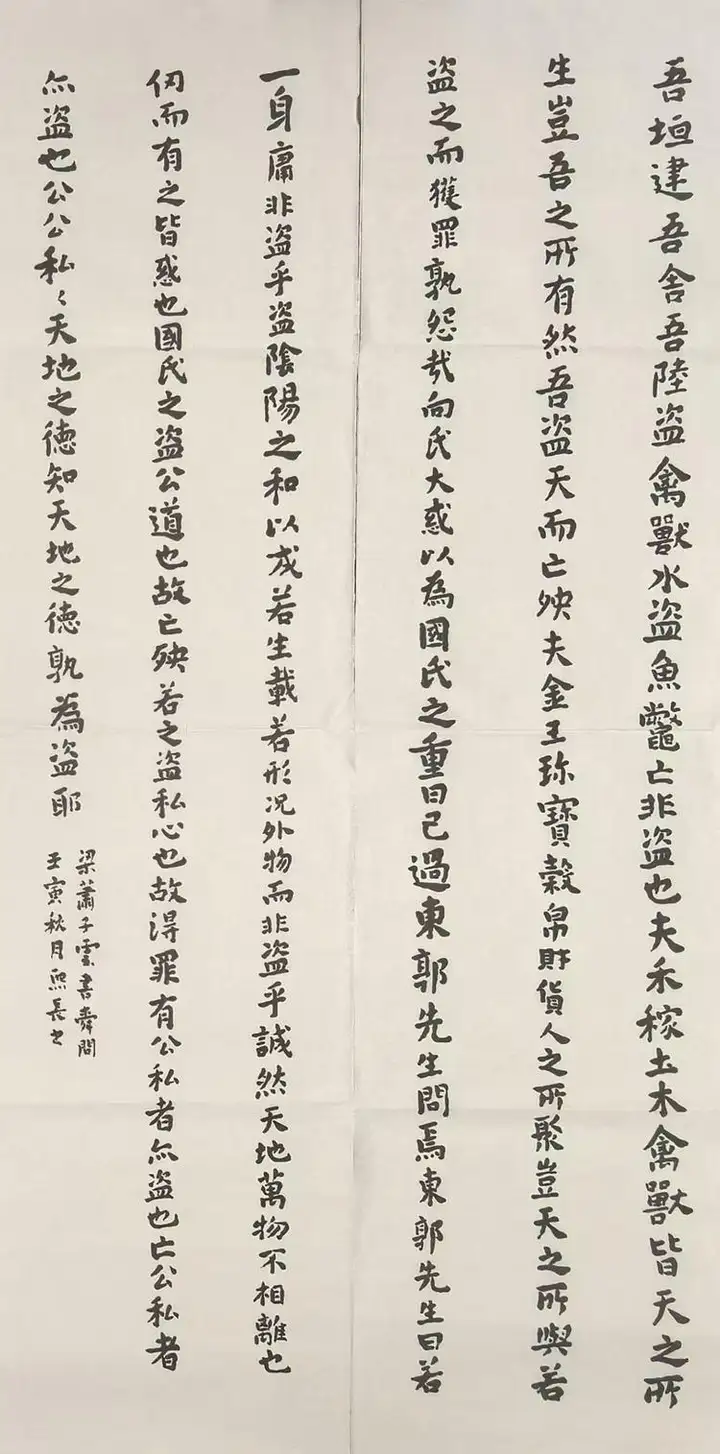 吾垣建吾舍吾陸盜禽獸水盜魚鼈亡非盜也夫禾稼土木禽獸皆天之所
生豈吾之所有然吾盜天而亡殃夫金玉珎寶穀帛財貨人之所聚豈天之所與若
盜之而獲罪孰怨哉向氏大惑以為國氏之重曰己過東郭先生問焉東郭先生曰若
一身庸非盜乎盜陰陽之和以成若生載若形況外物而非盜乎誠然天地萬物不相離也
仞而有之皆惑也國氏之盜公道也故亡殃若之盜私心也故得罪有公私者亦盜也亡公私者
亦盜也公公私〻天地之德知天地之德孰為盜耶
梁蕭子雲書舜問
壬寅秋月熙長书